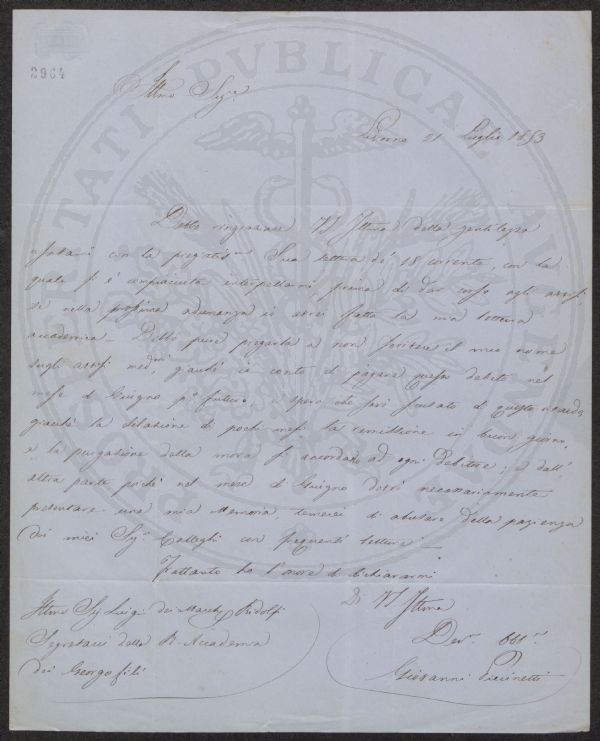 2964
Illmo Sigre
Livorno 21 Luglio 1853
Debbo ringraziare VS Illma della gentilezza
usatami con la pregiatma Sua lettera de' 18 corrente, con la
quale si è compiaciuta interpellarmi, prima di dar corso agli avvisi,
se nella prossima adunanza io avrei fatta la mia lettura
accademica. Debbo pure pregarla a non scrivere il mio nome
sugli avvisi medmi, giacchè io conto di pagare questo debito nel
mese di Giugno po futuro. e spero che sarò scusato di questo ritardo,
giacchè la dilazione di pochi mesi, la remissione in buon giorno,
e la purgazione della mora si accordano ad ogni Debitore; e dall'
altra parte poichè nel mese di Giugno dovrò necessariamente
presentare una mia Memoria, temerei di abusare della pazienza
dei miei Sigi Colleghi con frequenti letture.
Frattanto ho l'onore di dichiararmi
Di VS Illma
Illmo Sig Luigi dei Marchi Ridolfi
Segretario della R. Accademia
dei Georgofili
Devo. Obbo.
Giovanni
PROSPERITATI PVBLICAE AVGENDAE